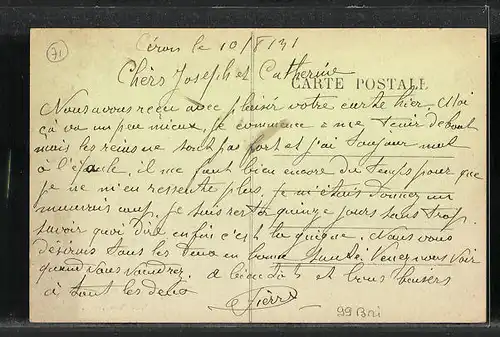 71
Céron le 10/8/31
Chèrs Joseph et Catherine
CARTE POSTALE
Nous avons reçu avec plaisir votre carte hier. Moi
ça va un peu mieux, je commence a me tenir debout
mais les reins ne sont pas fort et j'ai toujour mal
à l'épaule, il me faut bien encore du temps pour que
je ne m'en ressente plus, je m'étais donner un
mauvais coup, je suis resté quinze jours sans trop
savoir quoi dire enfin c'est la guigne. Nous vous
désirons tous les deux en bonne santé. Venez nous voir
quand vous voudrez. a bientôt et bons baisers
à tout les deux
Pierre
99 Bri